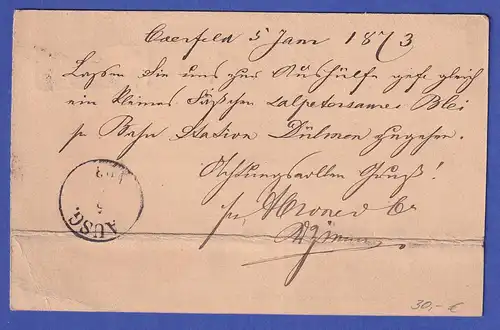 Coesfeld 5 Jan 1873
Lassen Sie uns zur Aushülfe gefl gleich
ein kleines Fäßchen salpetersames Blei
pr Bahn Station Dülmen zugehen.
Achtungsvollen Gruß!
pr
AUSG.
30,- €